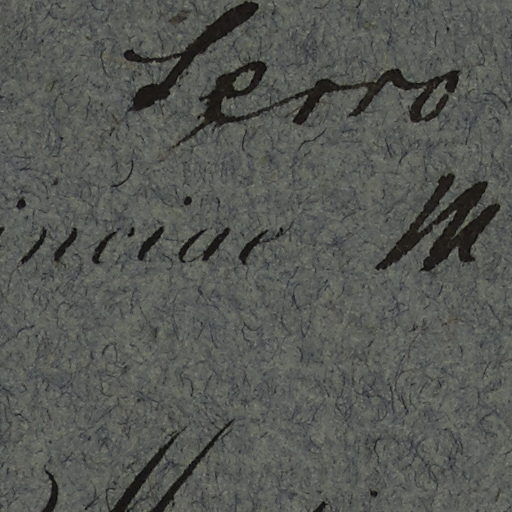 Serro
inciae M